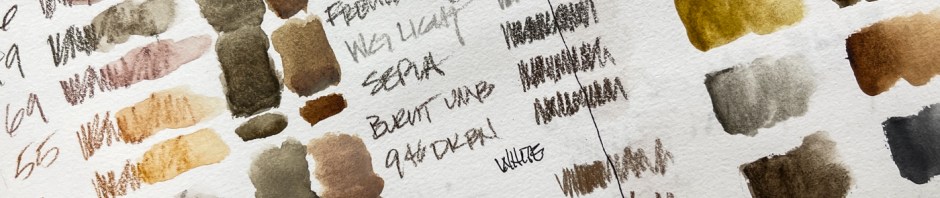 69
55
WG LIGHT
SEPIA
BURNT UMB
946 DKBN
WHITE